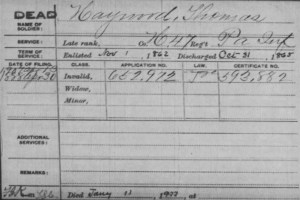 DEAD
NAME OF SOLDIER:
Haywood, Thomas
SERVICE:
Late rank, H 47 Reg't Pa Inf
TERM OF SERVICE:
Enlisted Nov 1, 1862 Discharged Oct 31, 1865
DATE OF FILING. CLASS. APPLICATION NO. LAW. CERTIFICATE NO.
Invalid, 652,972 592,882
Widow,
Minor,
ADDITIONAL SERVICES:
REMARKS:
Died Jany 11, 1922, at